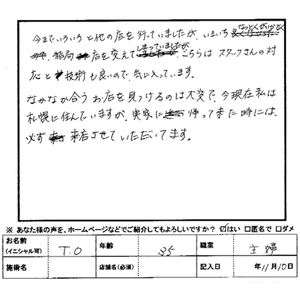 なっとくがいかなく
今までいろいろと他の店を行っていましたが、いまいち
結局 店を変えてしまっていましたが、こちらはスタッフさんの対
応と技術も良いので、気に入っています。
なかなか合うお店を見つけるのは大変で、今現在私は
札幌に住んでいますが、実家に帰って来た時には、
必ず来店させていただいてます。
※ あなた様の声を、ホームページなどでご紹介してもよろしいですか？ ☑はい □匿名で □ダメ
お名前 (イニシャル可) T.O 年齢 35 職業 主婦
施術名 店舗名(必須) 記入日 年11月10日